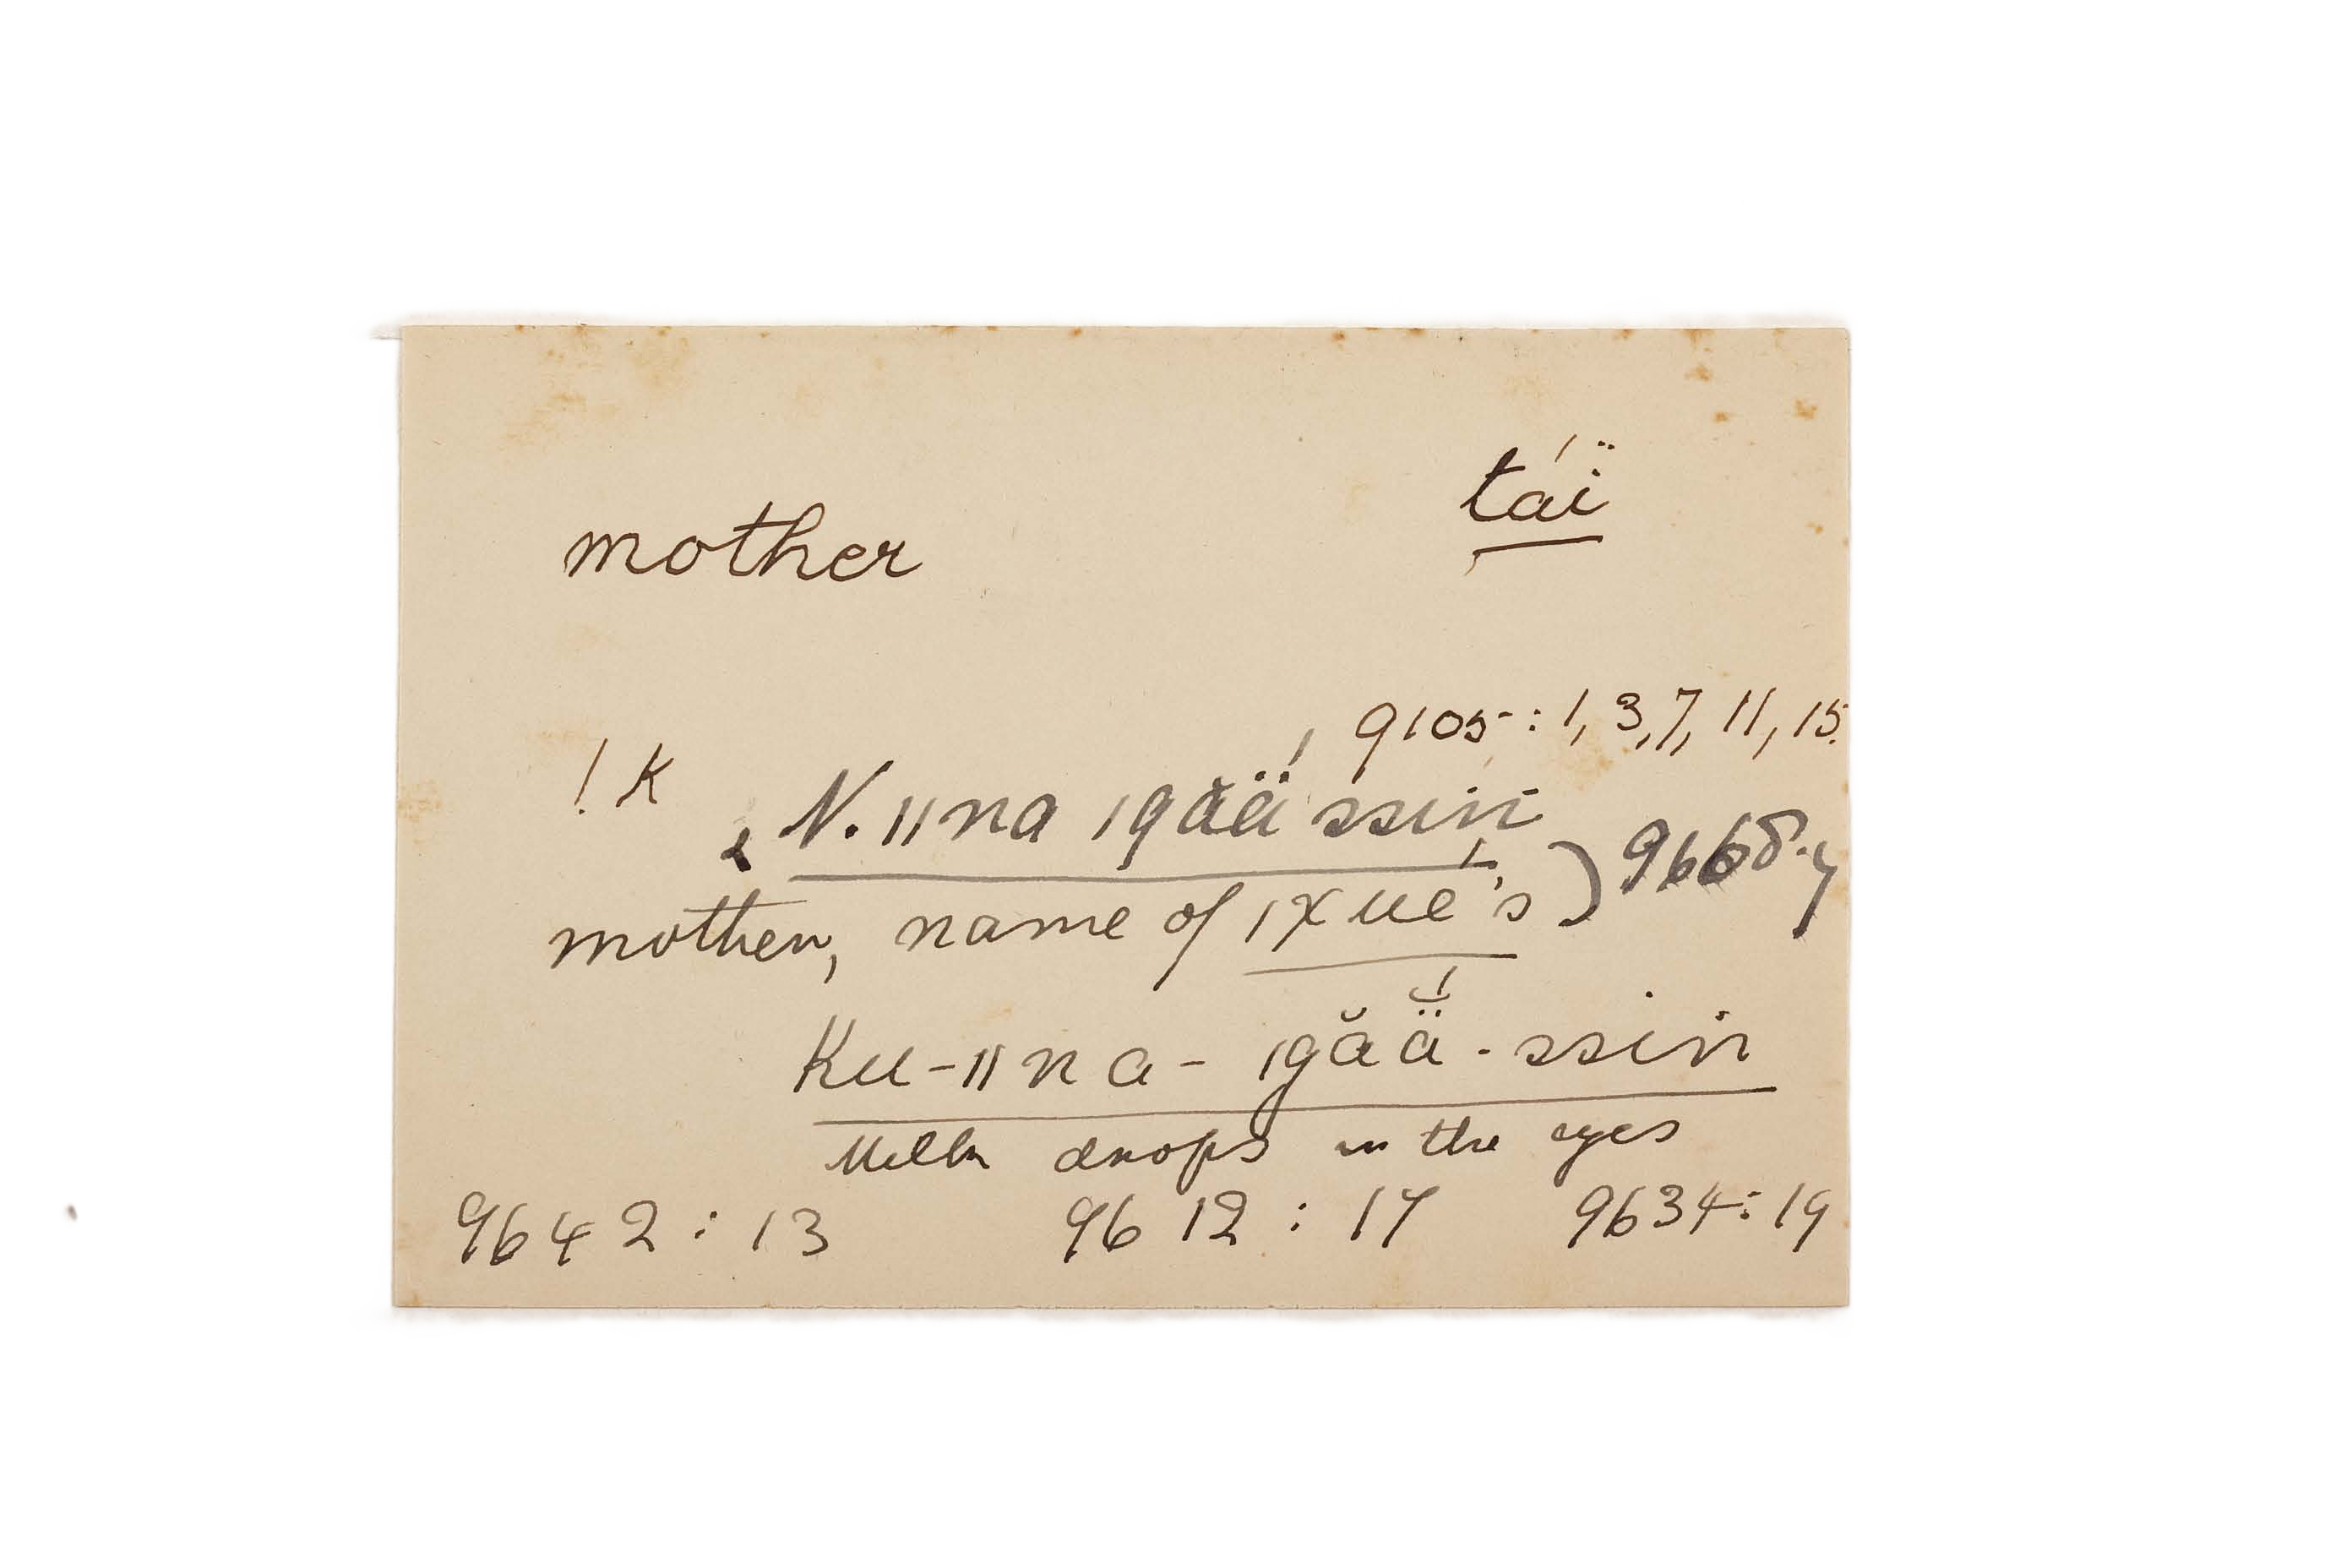 táï
mother
9105 : 1, 3, 7, 11, 15.
! K
N. ǁna ǀgăä́ ssin
mother, name of ǀxué's ) 9668.
Ku-ǁna-ǀgăä̆́-ssin
Milk drops in the eyes
9642 : 13 9612 : 17 9634 : 19